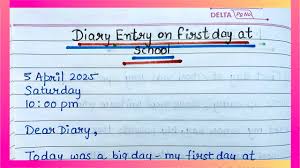 DELTA Pg No
Diary Entry on first day at
School
5 April 2025
Saturday
10:00 pm
Dear Diary,
Today was a big day - my first day at